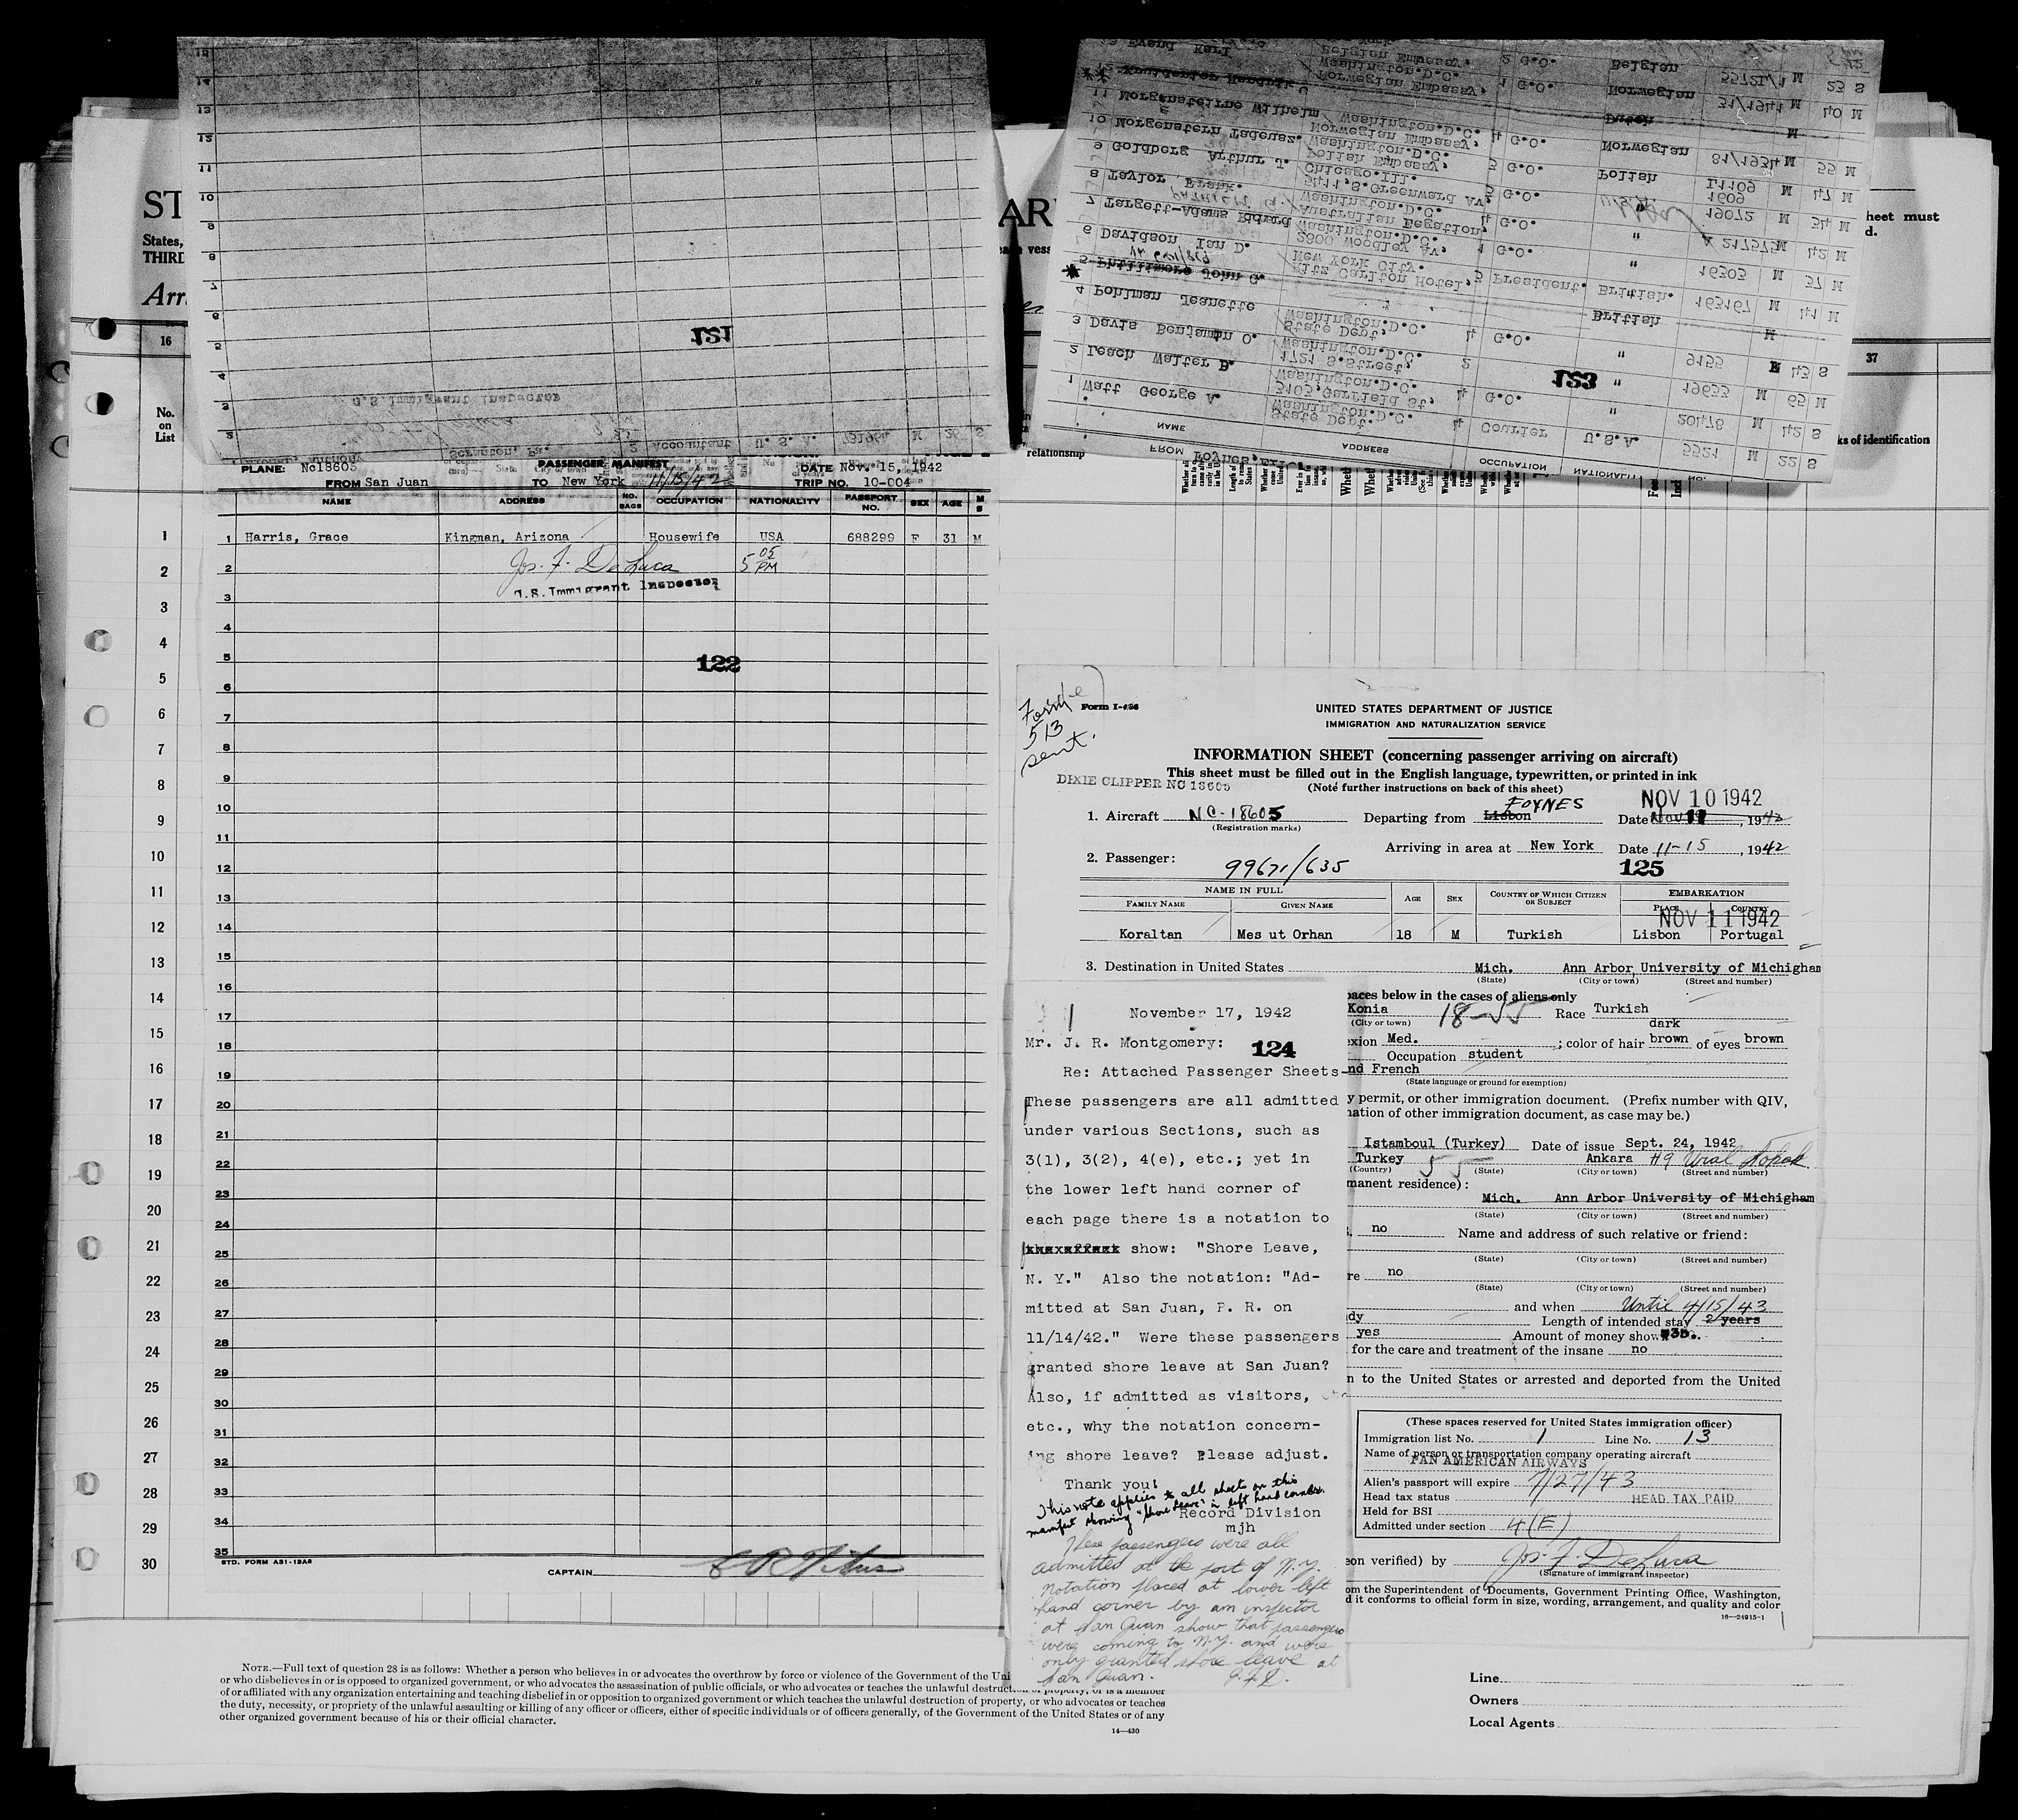 ST
States,
THIRD
Arr
AR
heet must
d.
16
37
No.
on
List
ks of identification
relationship
15
14
13
12
11
10
9
8
7
6
5
4
3
2
121
U.S. Immigrant Inspector
Scranton, Pa. 2 Accountant U. S. A. 731964 M 26 S
FROM FOYNES,
NAME ADDRESS OCCUPATION NATIONALITY
1 Watt George A. State Dept. Washington.D.C. 4 Courier U.S.A. 5521 M 22 S
2 Leach Walter B. 3103,Garfield St, Washington.D.C. 4 G.O. " 20478 M 42 S
3 Davis Benjamin O. 1721 S.Street, Washington.D.C. 2 " 19633 M 65 M
4 Pohlman Jeanette State Dept, Washington.D.C. 4 G.O. " 9155 F 43 S
5 Phillimore John G. British M
6 Davidson Ian D. Ritz Carlton Hotel, New York City. 5 President. British. 163167 M 41 M
7 Targett-Adams 2800 Woodley Av, Washington.D.C. 1 G.O. " 16303 M 37 M
8 Taylor Frank. Australian Legation, Washington.D.C. 4 G.O. " 217575 M 42 M
9 Goldberg Arthur J. 5411,S.Greenward Av, Chicago.Ill. 5 G.O. 19072 M 34 M
10 Morgenstern Tadeusz. Polish Embassy, Washington.D.C. 5 G.O. Polish L1109 1609 M 47 M
11 Morgenstierne Wilhelm Norwegian Embassy, Washington.D.C. 4 G.O. Norwegian 81/1934 M 55 M
12 Kruidenier Hendrik C Dutch M
Norwegian Embassy, Washington.D.C. 1 G.O. Norwegian 31/1941 M 40 M
Belgian Embassy. 2 G.O. Belgian 5572L/1 M 23 S
123
PLANE: Nc18605 PASSENGER MANIFEST DATE Nov. 15, 1942
FROM San Juan TO New York 11/15/42 TRIP NO. 10-004
NAME ADDRESS NO. BAGS OCCUPATION NATIONALITY PASSPORT NO. SEX AGE M S
1 Harris, Grace Kingman, Arizona Housewife USA 688299 F 31 M
2 Jos. F. DeLuca 5 05 PM
U.S. Immigrant Inspector
3
4
5 122
6
7
8
9
10
11
12
13
14
15
16
17
18
19
20
21
22
23
24
25
26
27
28
29
30
31
32
33
34
35
STD. FORM A31-13A8
CAPTAIN
1
2
3
4
5
6
7
8
9
10
11
12
13
14
15
16
17
18
19
20
21
22
23
24
25
26
27
28
29
30
Form
513
sent.
Form I-466
UNITED STATES DEPARTMENT OF JUSTICE
IMMIGRATION AND NATURALIZATION SERVICE
INFORMATION SHEET (concerning passenger arriving on aircraft)
This sheet must be filled out in the English language, typewritten, or printed in ink
(Note further instructions on back of this sheet)
DIXIE CLIPPER NC 18605
NOV 10 1942
1. Aircraft NC-18605 Departing from Lisbon FOYNES Date Nov 11, 1942
(Registration marks)
Arriving in area at New York Date 11-15, 1942
2. Passenger: 99671/635 125
NAME IN FULL AGE SEX COUNTRY OF WHICH CITIZEN OR SUBJECT EMBARKATION
FAMILY NAME GIVEN NAME PLACE COUNTRY
NOV 11 1942
Koraltan Mes ut Orhan 18 M Turkish Lisbon Portugal
3. Destination in United States Mich. Ann Arbor University of Michigham
(State) (City or town) (Street and number)
paces below in the cases of aliens only
Konia 18-55 Race Turkish
(City or town) dark
exion Med. ; color of hair brown of eyes brown
Occupation student
nd French
(State language or ground for exemption)
y permit, or other immigration document. (Prefix number with QIV,
nation of other immigration document, as case may be.)
Istamboul (Turkey) Date of issue Sept. 24, 1942
Turkey 55 Ankara #9
(Country) (State) (City or town) (Street and number)
manent residence):
Mich. Ann Arbor University of Michigham
(State) (City or town) (Street and number)
no Name and address of such relative or friend:
(State) (City or town) (Street and number)
re no
(State) (City or town) (Street and number)
and when Until 4/15/43
dy Length of intended stay 2 years
yes Amount of money shown $35.
for the care and treatment of the insane no
n to the United States or arrested and deported from the United
(These spaces reserved for United States immigration officer)
Immigration list No. 1 Line No. 13
Name of person or transportation company operating aircraft
PAN AMERICAN AIRWAYS
Alien's passport will expire 7/27/43
Head tax status HEAD TAX PAID
Held for BSI
Admitted under section 4(E)
son verified) by Jos. F. DeLuca
(Signature of immigrant inspector)
om the Superintendent of Documents, Government Printing Office, Washington,
d it conforms to official form in size, wording, arrangement, and quality and color
16—24915-1
November 17, 1942
Mr. J. R. Montgomery: 124
Re: Attached Passenger Sheets-
These passengers are all admitted
under various Sections, such as
3(1), 3(2), 4(e), etc.; yet in
the lower left hand corner of
each page there is a notation to
show: "Shore Leave,
N. Y." Also the notation: "Ad-
mitted at San Juan, P. R. on
11/14/42." Were these passengers
granted shore leave at San Juan?
Also, if admitted as visitors,
etc., why the notation concern-
ing shore leave? Please adjust.
Thank you!
This note applies to all sheets on this
manifest showing "shore leave" in left hand corner.
Record Division
mjh
These passengers were all
admitted at the port of N.Y.
Notation placed at lower left
hand corner by an inspector
at San Juan show that passengers
were coming to N.Y. and were
only granted shore leave at
San Juan. J.F.D.
NOTE.—Full text of question 28 is as follows: Whether a person who believes in or advocates the overthrow by force or violence of the Government of the Uni
or who disbelieves in or is opposed to organized government, or who advocates the assassination of public officials, or who advocates or teaches the unlawful destruction of property, or is a member
of or affiliated with any organization entertaining and teaching disbelief in or opposition to organized government or which teaches the unlawful destruction of property, or who advocates or teaches
the duty, necessity, or propriety of the unlawful assaulting or killing of any officer or officers, either of specific individuals or of officers generally, of the Government of the United States or of any
other organized government because of his or their official character.
14—430
Line
Owners
Local Agents